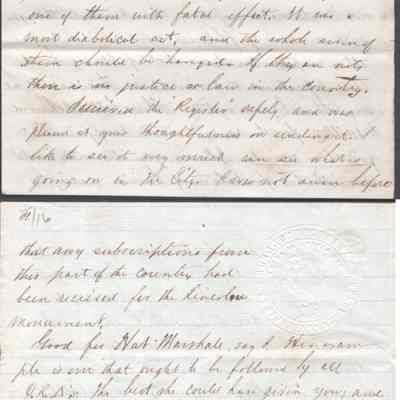 one of them with fatal effect. It was a
most diabolical act, and the whole swing of
them should be hanged. If they are not,
there is no justice or law in the Country.
Received the Register safely and was
pleased at your thoughtfulness in sending it. I
like to see it very much can see what is
going on in the City. I was not aware before
that any subscriptions from
this part of the country had
been received for the Lincoln
monument.
Good for Hat Marshall, say I. Her exam
ple is one that ought to be followed by all
The best she could have given you, and